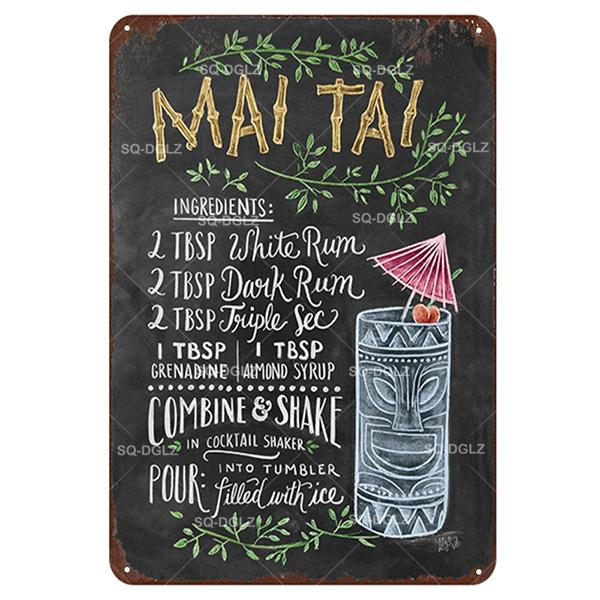 SQ-DGLZ SQ-DGLZ
MAI TAI
SQ-DGLZ SQ-DGLZ
INGREDIENTS:
SQ-DGLZ SQ-DGLZ
2 TBSP White Rum
2 TBSP Dark Rum
2 TBSP Triple Sec
1 TBSP | 1 TBSP
GRENADINE | ALMOND SYRUP
SQ-DGLZ SQ-DGLZ
COMBINE & SHAKE
IN COCKTAIL SHAKER
SQ-DGLZ SQ-DGLZ
POUR: INTO TUMBLER
filled with ice
SQ-DGLZ SQ-DGLZ